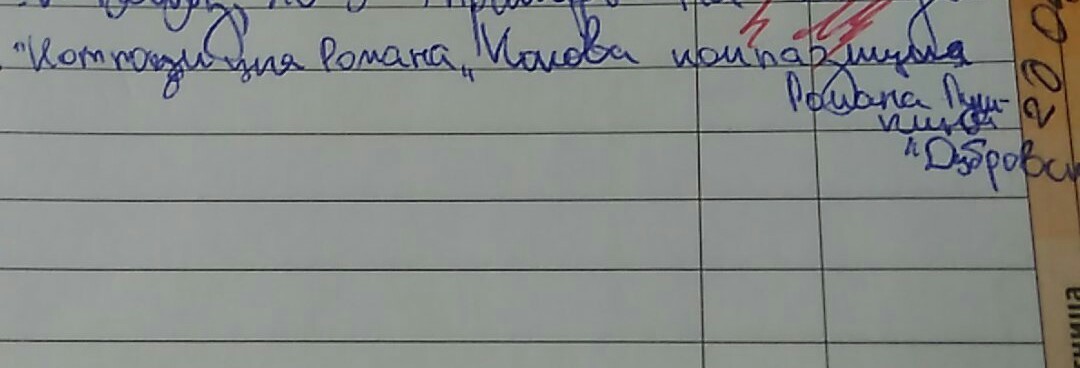 "Компози ция Романа„ Какова композиция
Романа Пуш-
кина
"Дубровск
20 0
ница